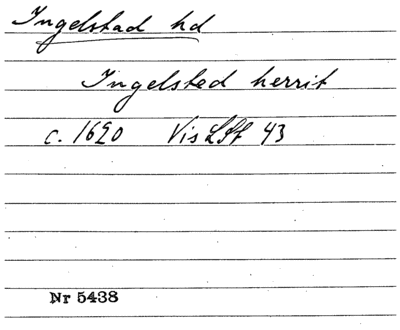 Ingelstad hd
Ingelsted herrit
c. 1620 Vis LSt 43
Nr 5438